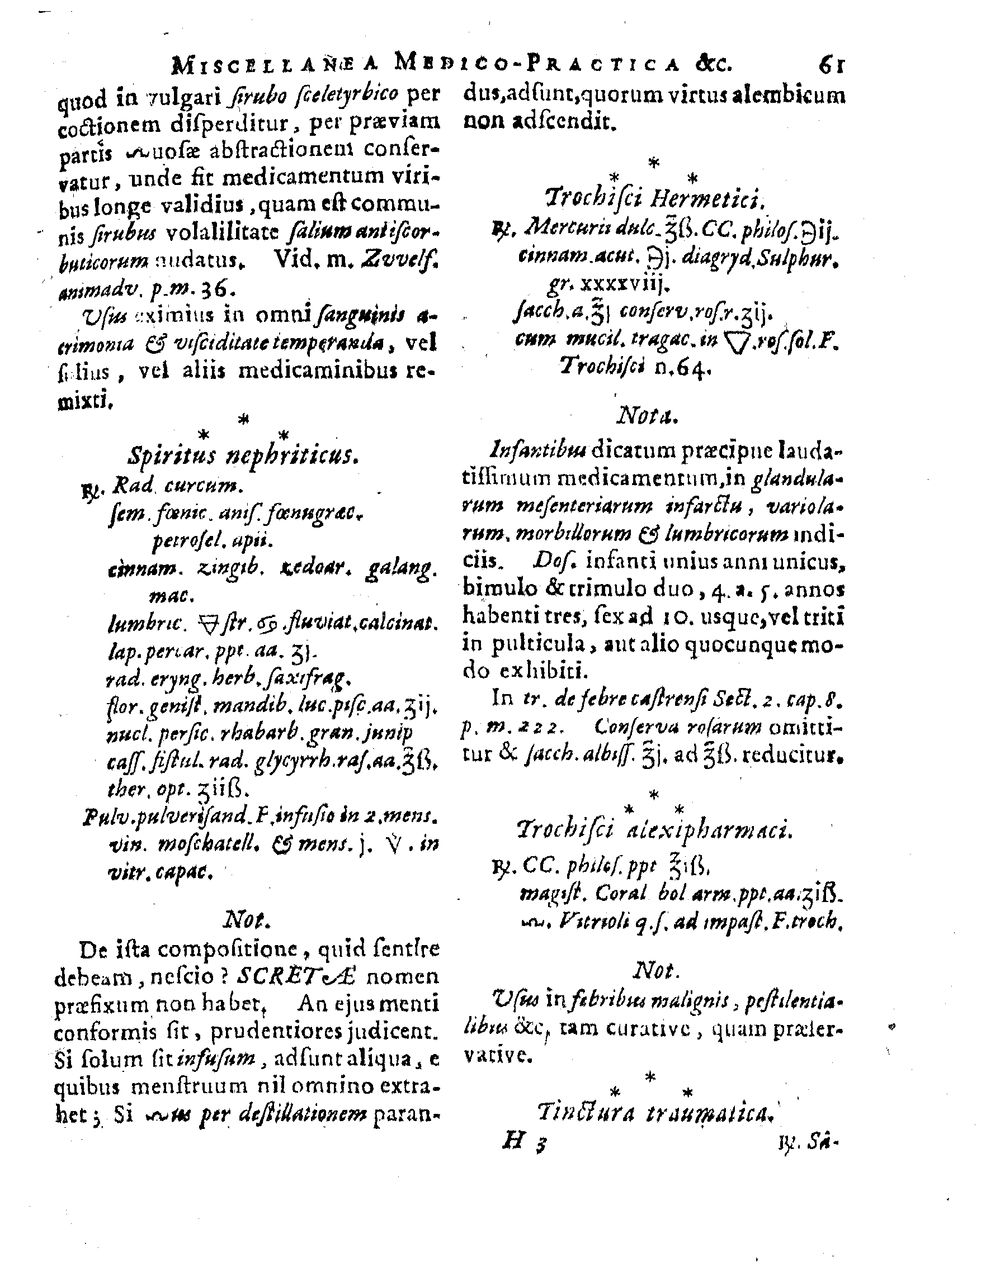 MISCELLANEA MEDICO-PRACTICA &c. 61
quod in vulgari ſirubo ſceletyrbico per
coctionem diſperditur, per præviam
partis uoſæ abſtractionem conſer-
vatur, unde fit medicamentum viri-
bus longe validius, quam eſt commu-
nis ſirubus volalilitate ſalium antiſcor-
buticorum nudatus. Vid. m. Zvvelf.
animadv. p.m. 36.
Uſus eximius in omni ſanguinis a-
crimonia & viſciditate temperanda, vel
ſolius, vel aliis medicaminibus re-
mixti.
*
* *
Spiritus nephriticus.
℞. Rad. curcum.
ſem. fœnic. aniſ. fœnugræc.
petroſel. apii.
cinnam. zingib. zedoar. galang.
mac.
lumbric. 🜃 ſtr. ♋. fluviat. calcinat.
lap. percar. ppt. aa. ʒj.
rad. eryng. herb. ſaxifrag.
flor. geniſt. mandib. luc. piſc. aa. ʒij.
nucl. perſic. rhabarb. gran. junip
caſſ. fiſtul. rad. glycyrrh. raſ. aa. ℥ß.
ther. opt. ʒiiß.
Pulv. pulveriſand. F. infuſio in 2. mens.
vin. moſchatell. & mens. j. V. in
vitr. capac.
Not.
De iſta compoſitione, quid ſentire
debeam, neſcio? SCRETÆ nomen
præfixum non habet. An ejus menti
conformis ſit, prudentiores judicent.
Si ſolum ſit infuſum, adſunt aliqua, e
quibus menſtruum nil omnino extra-
het; Si us per deſtillationem paran-
dus, adſunt, quorum virtus alembicum
non adſcendit.
*
* *
Trochiſci Hermetici.
℞. Mercurii dulc. ℥ß. CC. philoſ. ℈ij.
cinnam. acut. ℈j. diagryd. Sulphur.
gr. xxxxviij.
ſacch. a. ℥j conſerv. roſ. r. ʒij.
cum mucil. tragac. in 🜄. roſ. ſol. F.
Trochiſci n. 64.
Nota.
Infantibus dicatum præcipue lauda-
tiſſimum medicamentum, in glandula-
rum meſenteriarum infarctu, variola-
rum, morbillorum & lumbricorum indi-
ciis. Doſ. infanti unius anni unicus,
bimulo & trimulo duo, 4. a. 5. annos
habenti tres, ſex ad 10. usque, vel triti
in pulticula, aut alio quocunque mo-
do exhibiti.
In tr. de febre caſtrenſi Sect. 2. cap. 8.
p. m. 222. Conſerva roſarum omitti-
tur & ſacch. albiſſ. ℥j. ad ℥ß. reducitur.
*
* *
Trochiſci alexipharmaci.
℞. CC. philoſ. ppt ℥iß.
magiſt. Coral bol arm. ppt. aa. ʒiß.
Vitrioli q. ſ. ad impaſt. F. troch.
Not.
Uſus in febribus malignis, peſtilentia-
libus &c, tam curative, quam præſer-
vative.
*
* *
Tinctura traumatica.
H 3 ℞. Sa-